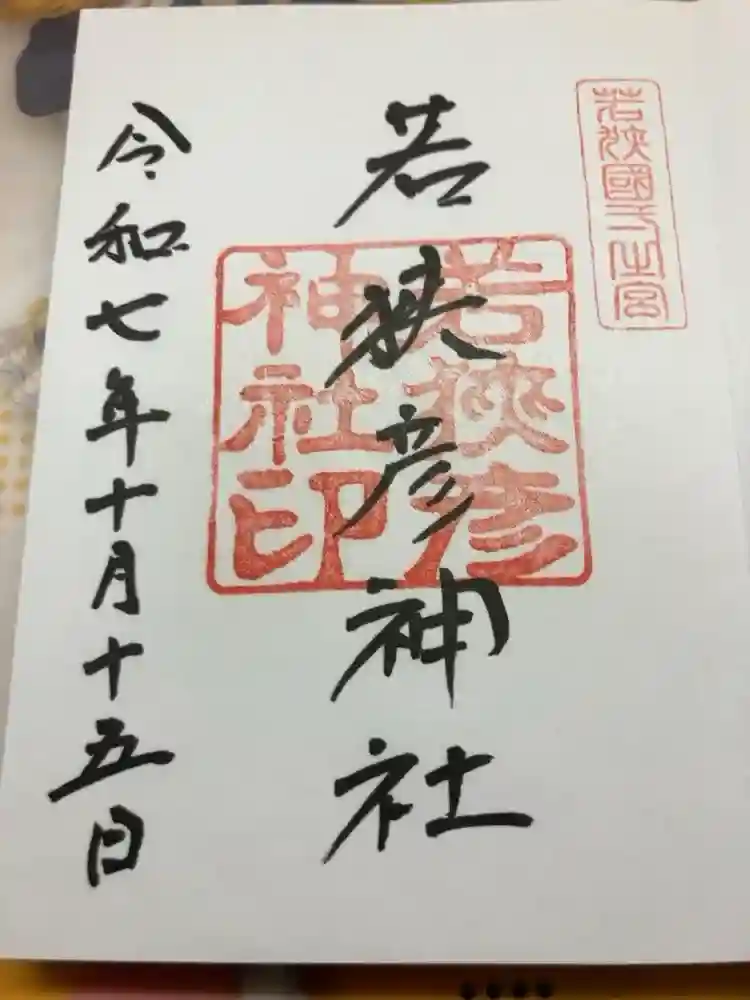 若狭國一之宮
若狭彦神社
若狭彦
神社印
令和七年十月十五日